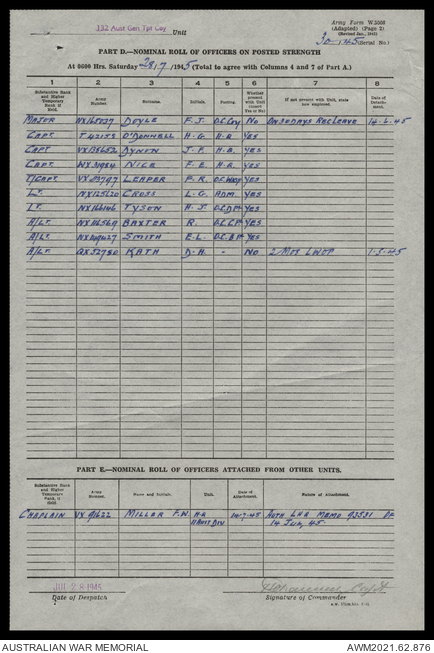 132 Aust Gen Tpt Coy Unit
Army Form W.3008
(Adapted) (Page 2)
(Serial No.)
PART D.—NOMINAL ROLL OF OFFICERS ON POSTED STRENGTH
At 0600 Hrs. Saturday 28/7/1945 (Total to agree with Columns 4 and 7 of Part A.)
1 2 3 4 5 6 7 8
Substantive Rank and Higher Temporary Rank if Held. Army Number. Surname. Initials. Posting. Whether present with Unit (insert Yes or No) If not present with Unit, state how employed. Date of Detachment.
MAJOR DOYLE F.J. O.C. Coy NO 30 DAYS REC LEAVE 14-6-45
CAPT O'DONNELL H.G. H.Q YES
CAPT VX138652 DYNON J.F. H.Q. YES
CAPT WX31984 NICE F.E. H.Q. YES
T/CAPT LEAPER P.R. YES
LT CROSS L.G. ADM. YES
LT TYSON H.J. YES
A/LT BAXTER R. YES
A/LT SMITH E.L. YES
A/LT QX52780 KATH D.A. - NO 2 MOS LWOP 1-5-45
PART E.—NOMINAL ROLL OF OFFICERS ATTACHED FROM OTHER UNITS.
Substantive Rank and Higher Temporary Rank, if Held. Army Number. Name and Initials. Unit. Date of Attachment. Nature of Attachment.
CHAPLAIN VX91622 MILLER F.W. H.Q. 14-7-45 AUTH LHQ MEMO 93531 OF
11 AUST DIV 14 JULY 45
JUL 28 1945
Date of Despatch Signature of Commander
AUSTRALIAN WAR MEMORIAL AWM2021.62.876